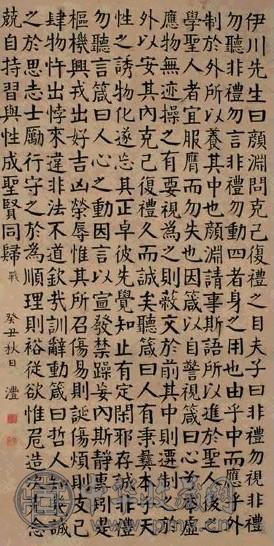 伊川先生曰顏淵問克己復禮之目夫子曰非禮勿視非禮
勿聽非禮勿言非禮勿動四者身之用也由乎中而應乎外
制於外所以養其中也顏淵請事斯語所以進於聖人後之
學聖人者宜服膺而勿失也因箴以自警視箴曰心兮本虛
應物無迹操之有要視為之則蔽交於前其中則遷制之於
外以安其內克己復禮久而誠矣聽箴曰人有秉彝本乎天
性之誘物化遂忘其正卓彼先覺知止有定閑邪存誠非禮
勿聽言箴曰人心之動因言以宣發禁躁妄內斯靜專矧是
樞機興戎出好吉凶榮辱惟其所召傷易則誕傷煩則支己
肆物忤出悖來違非法不道欽哉訓辭動箴曰哲人知幾誠
之於思志士勵行守之於為順理則裕從欲惟危造次克念
兢自持習與性成聖賢同歸 戰 癸丑秋日 澧